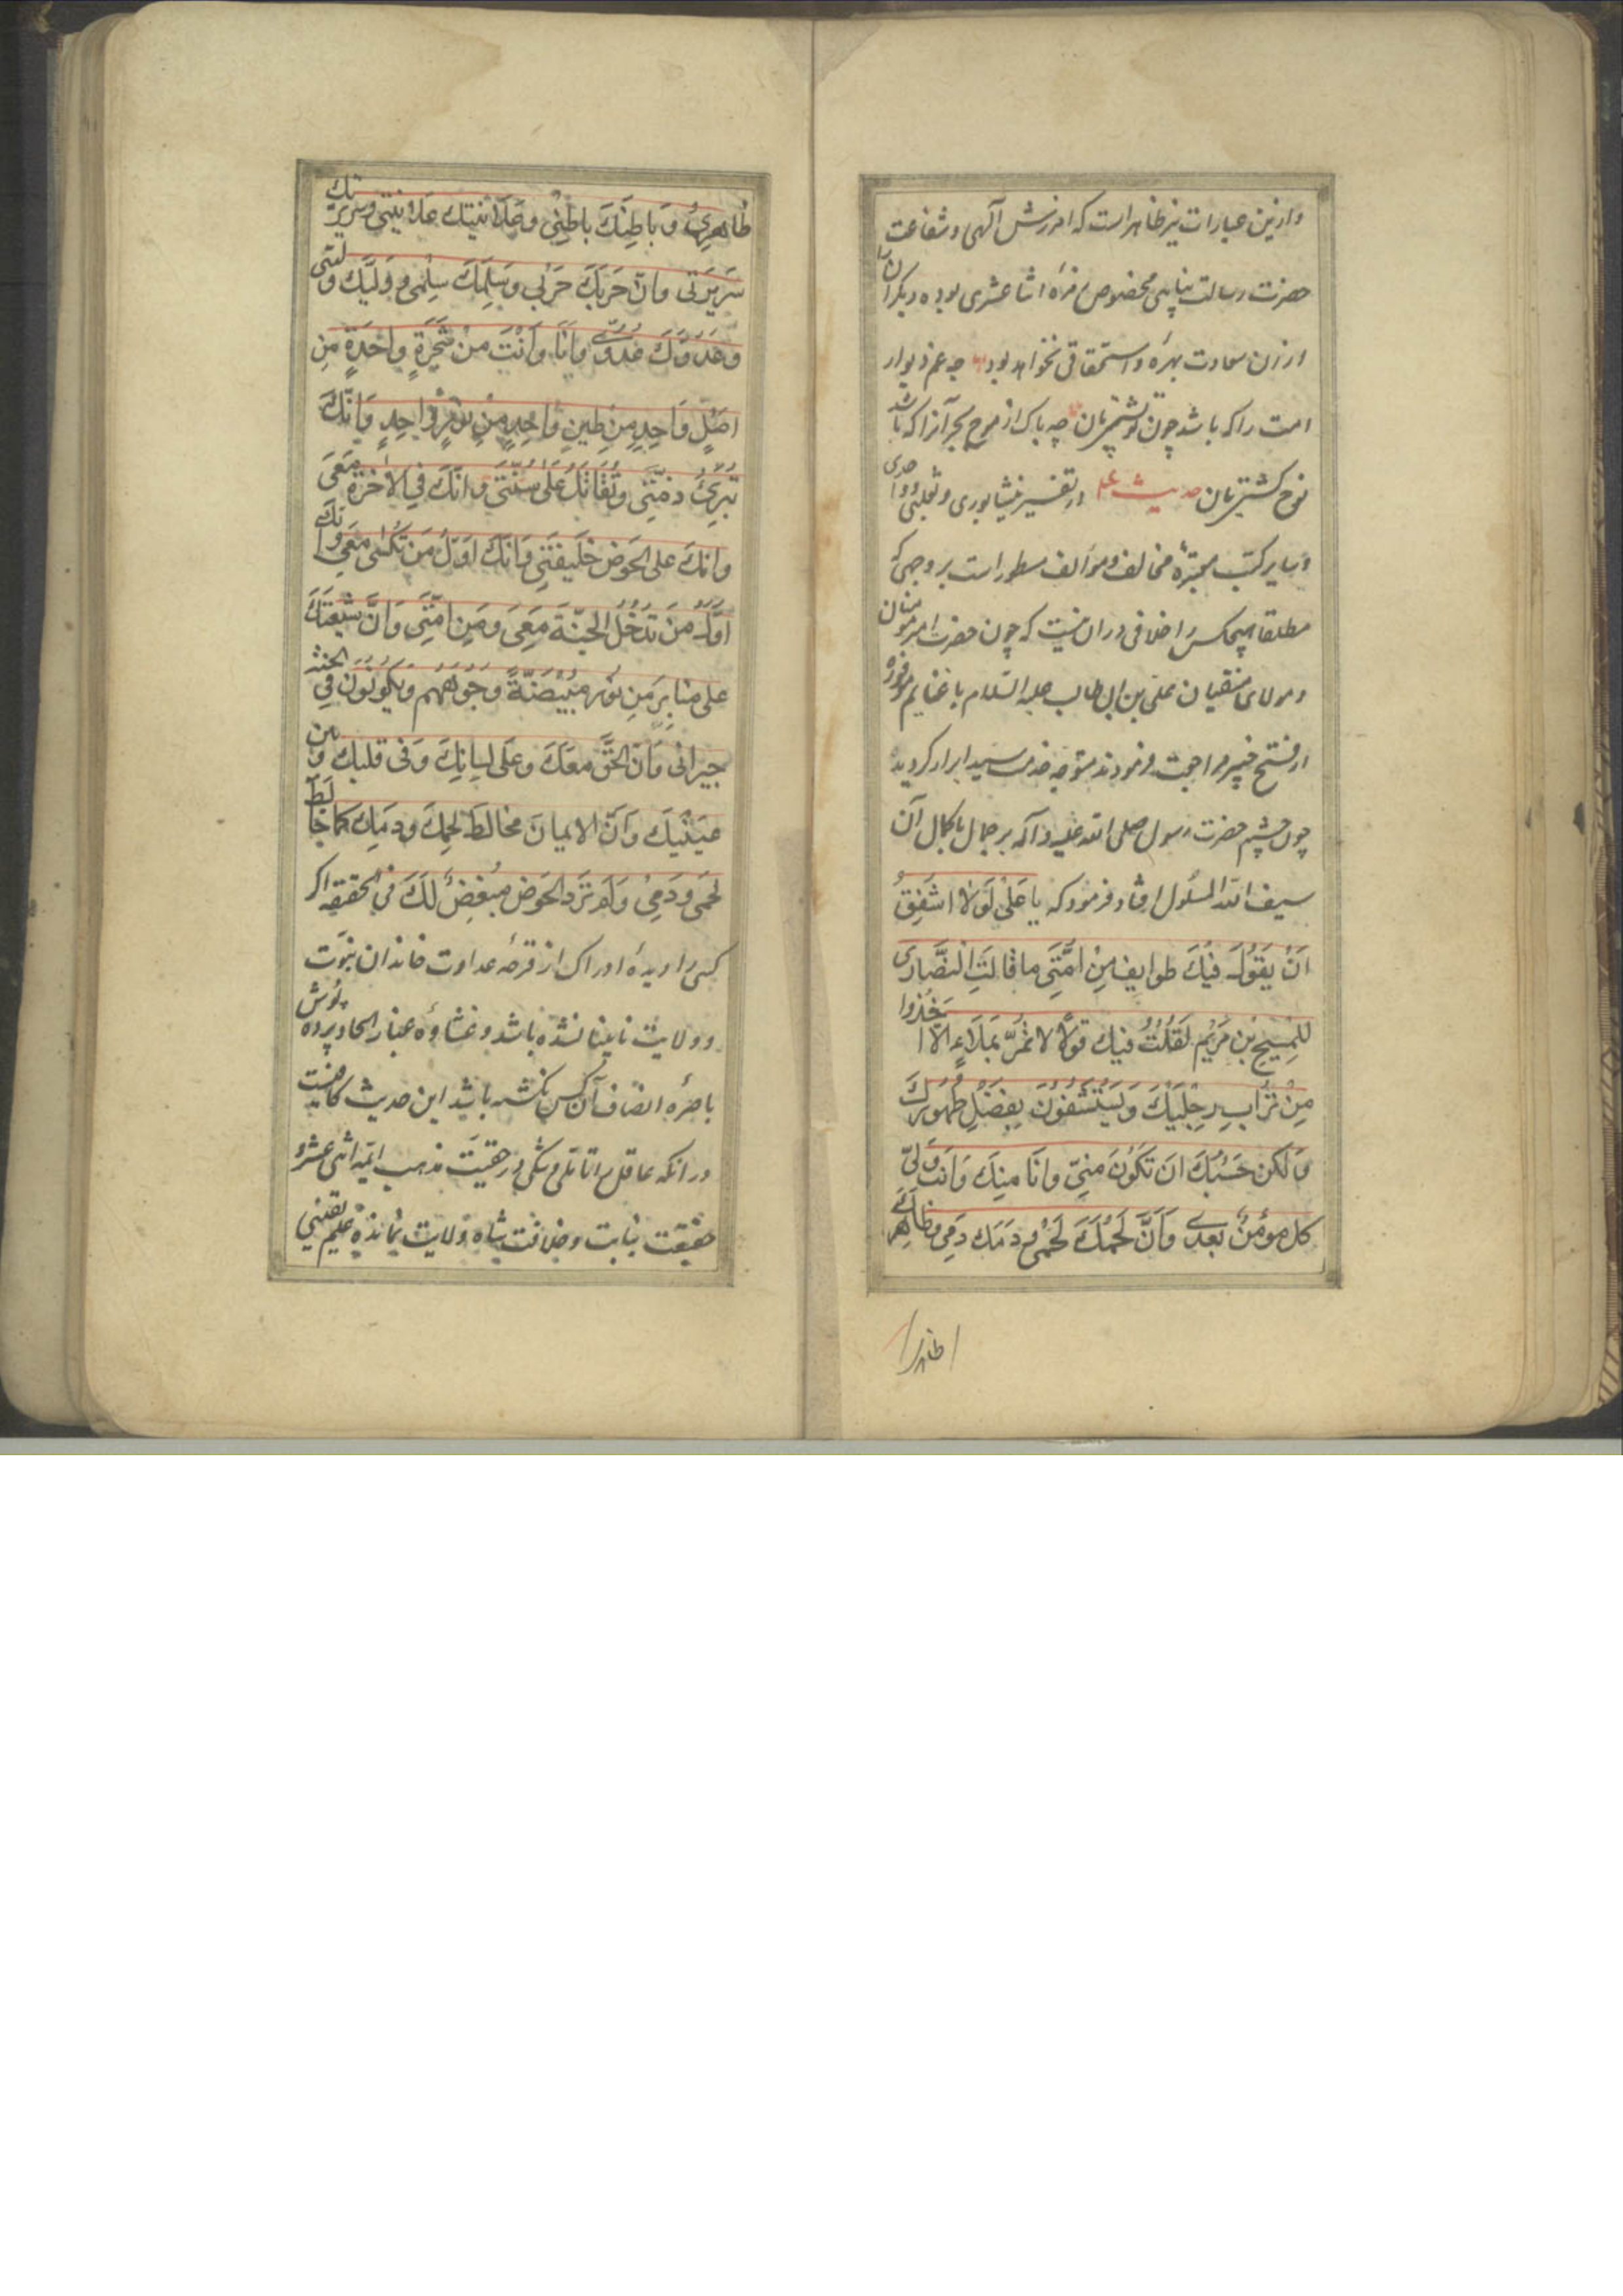 وازین عبارات نیز ظاهر است که امرزش آلهی و شفاعت
حضرت رسالت پناهی مخصوص فرهٔ اثنا عشری بوده دیکرانرا
ازان سعادت بهره و استحقاقی نخواهد بود چه غم دیوار
امت را که باشد چون تو پشتیبان چه باک از موج بحر آنرا که باشد
نوح کشتیبان حدیث در تفسیر نیشابوری و ثعلبی و واحدی
و سایر کتب معتبرهٔ مخالف و موالف مسطور است بر وجهی که
مطلقا هیچکس را خلافی دران نیست که چون حضرت امیر مومنان
و مولای متقیان علی بن ابی طالب علیه السّلام با غنایم موفوره
از فتح خیبر مراجعت فرمودند متوجه خدمت سید ابرار کردیده
چون چشم حضرت رسول صلی الله علیه و آله بر جمال با کمال آن
سیف الله المسلول افتاد فرمود که یا عَلیُّ لَوْلا اشفِقُ
اَنْ یَقُولَ فیکَ طوایِف مِنْ اُمَّتی ما قالَتِ النَّصاری
لِلمَسیحِ بْنِ مَرْیَم لَقُلْتُ فیكَ قَولاً لا تَمُرّ بِمَلاءٍ اِلّا اَخَذُوا
مِنْ تُرابِ رِجْلَیْكَ وَ یَسْتَشْفُونَ بِفَضْلِ طَهُورِكَ
وَ لکن حَسْبُكَ اَن تَكُونَ مِنّی وَ اَنَا مِنكَ وَ اَنتَ وَلیّ
كل مؤمن بعدی وَ اَنَّ لَحْمَكَ لَحْمی و دَمَك دَمی و ظاهِرَكَ
ظاهری
ظاهِری وَ باطِنَكَ باطِنی وَ عَلانیَتك عَلانیَتی و سَریرَتك
سَریرَتی وَ اَنّ حَرْبَكَ حَرْبی وَ سِلْمَكَ سِلْمی وَ وَلیَّكَ وَلیّی
وَ عَدُوَّكَ عَدُوّی وَ اَنَا وَ اَنْتَ مِنْ شَجَرَةٍ واحِدَةٍ مِنْ
اصلٍ واحِدٍ مِنْ طینٍ واحِدٍ مِنْ نورٍ واحِدٍ وَ اِنَّكَ
تُبْرِئُ ذِمَّتی وَ تُقاتِلُ عَلی سُنَّتی وَ اَنَّكَ فِی الآخِرَةِ مَعی
وَ اَنَّكَ عَلَی الحَوضِ خَلیفَتی وَ اَنَّكَ اَوّلُ مَن تُكْسی مَعی وَ اَنَّكَ
اَوّلُ مَنْ تَدْخُلُ الجَنَّةَ مَعی وَ مِن اُمَّتی وَ اَنَّ شیعَتَكَ
عَلی مَنابِرَ مِن نُورٍ مُبْیَضَّةً وُجُوهُهُم وَ یَكُونُونَ فی الجنّة
جیرانی وَ اَنّ الحَقَّ مَعَكَ وَ عَلی لِسانِكَ وَ فی قَلبِكَ وَ بین
عَیْنَیْكَ وَ اَنَّ الایمانَ مُخالِطٌ لَحمَكَ وَ دَمَكَ كَما خالَطَ
لَحمی وَ دَمی وَ لَم تَرِدِ الحَوضَ مُبْغِضٌ لَكَ فی الحقیقة اكر
كسی را دیدهٔ ادراك از قرحهٔ عداوت خاندان نبوّت
و ولایت نابینا نشده باشد و غشاوهٔ عناد الحاد پرده پوش
باصرهٔ انصاف آن كس نكشته باشد این حدیث كافیست
در آنكه عاقل را تاملی و شكی در حقیّت مذهب ائمه اثنی عشر و
حقیقت نیابت و خلافت شاه ولایت نمانده علیم یقینی